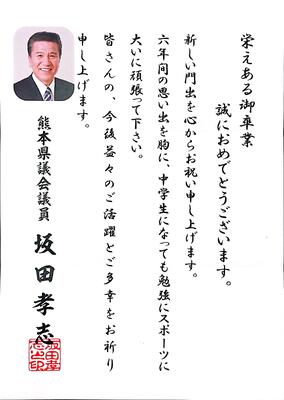 栄えある御卒業
誠におめでとうございます。
新しい門出を心からお祝い申し上げます。
六年間の思い出を胸に、中学生になっても勉強にスポーツに
大いに頑張って下さい。
皆さんの、今後益々のご活躍とご多幸をお祈り
申し上げます。
熊本県議会議員
坂田孝志
坂田孝志之印